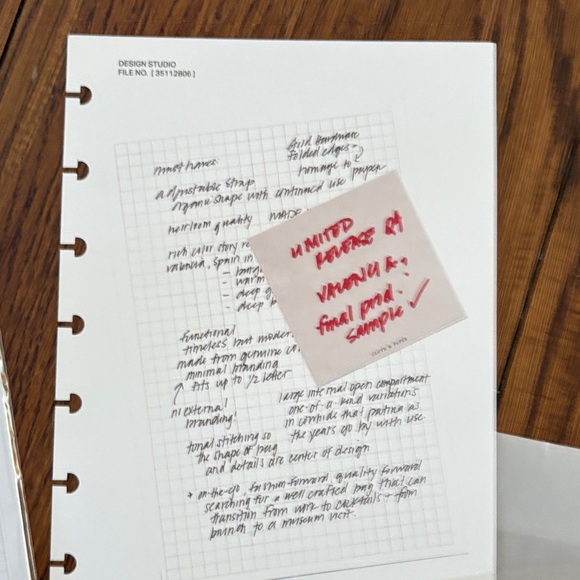 DESIGN STUDIO
FILE NO. [ 35112906 ]
must haves
gold hardware
folded edges -
homage to paper
adjustable strap
organic shape with continued use
heirloom quality MADE
rich color story
valencia, Spain in
- warm
- deep
- deep
functional
timeless but modern
made from genuine
minimal branding
fits up to 1/2 letter
no external
branding!
large internal open compartment
one-of-a-kind variations
in cowhide that patina as
the years go by with use
tonal stitching so
the shape of bag
and details are center of design
on-the-go, fashion-forward, quality forward
searching for a well crafted bag that can
transition from work to cocktails + from
brunch to a museum visit.
LIMITED
RELEASE
VALENCIA:
final prod.
sample ✓